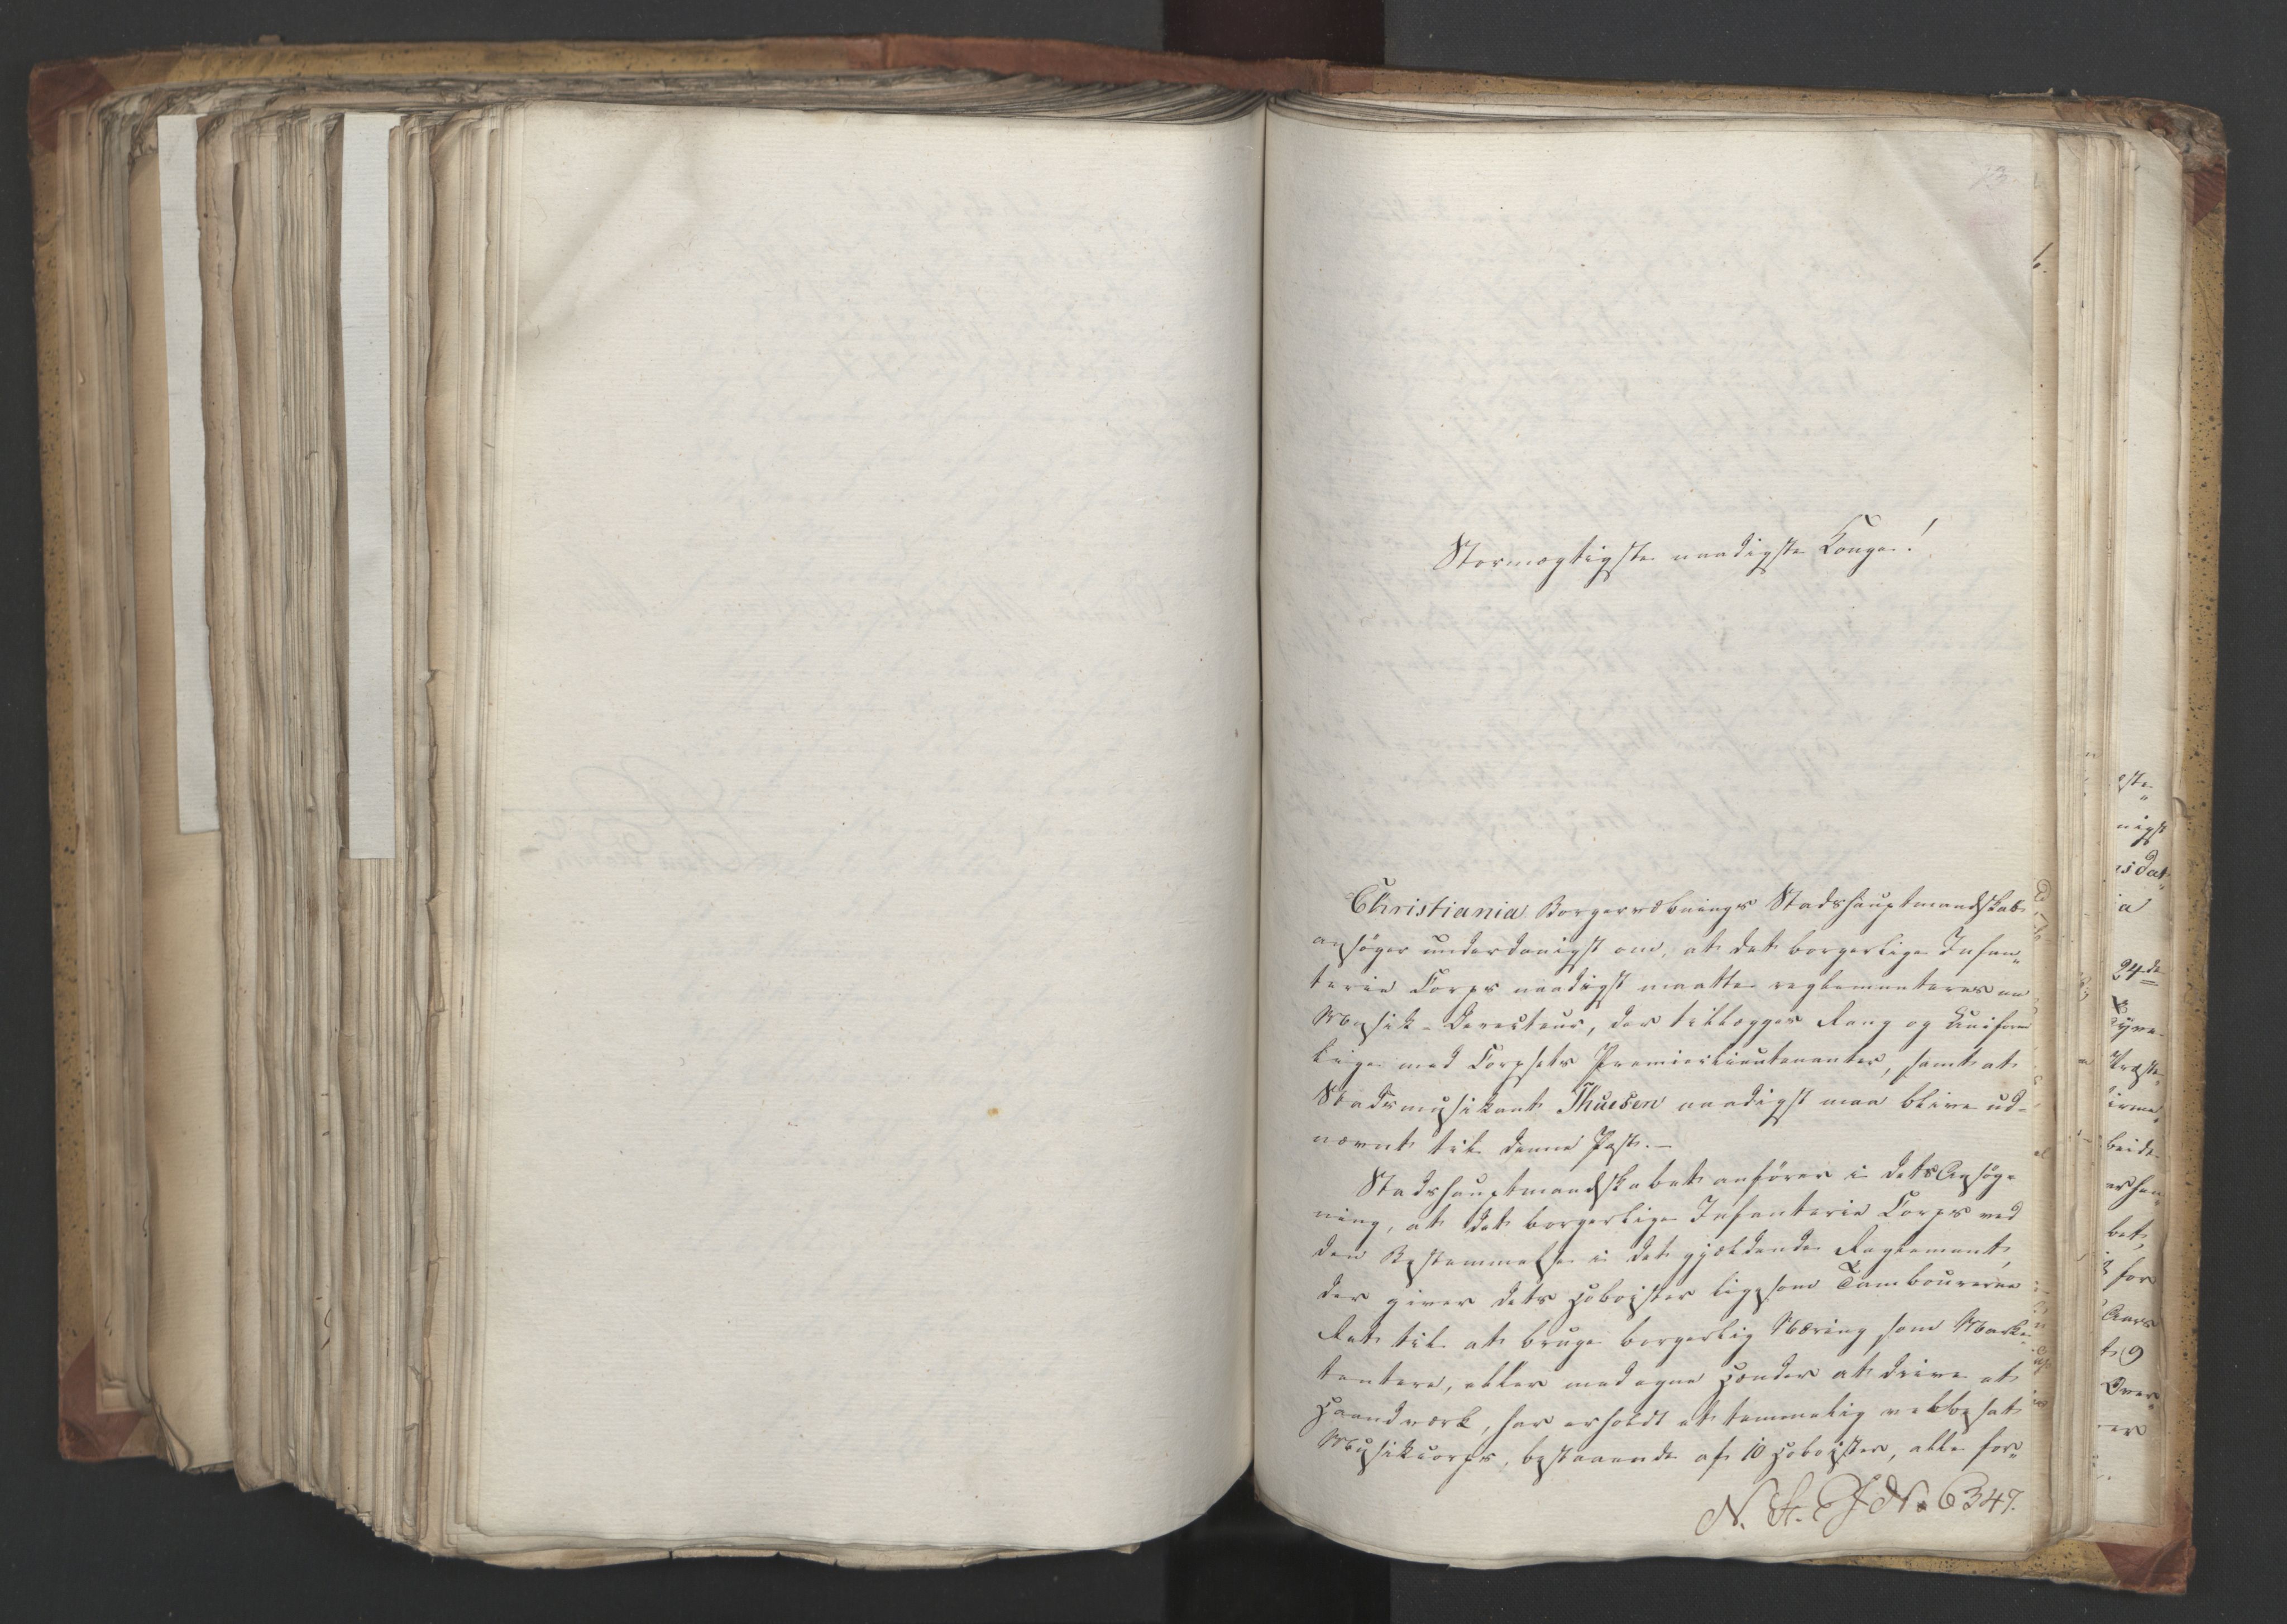 Stormægtigste naadigste Konge!
Christiania Borgervæbnings Stadshauptmandskab
ansøger underdanigst om, at det borgerlige Infan„
terie Corps naadigst maatte reglementeres en
Musik-Directeur, der tillægges Rang og Uniform
lige med Corpsets Premierlieutenanter, samt at
Stadsmusikant Thuesen naadigst maa blive ud-
nævnt til denne Post.—
Stadshauptmandskabet anfører i dets Ansøg-
ning, at det borgerlige Infanterie Corps ved
den Bestemmelse i det gjældende Reglement,
der giver dets Hoboister ligesom Tambourerne
Ret til at bruge borgerlig Næring som Marke-
tentere, eller med egne Hænder at drive et
Haandværk, har erholdt et temmelig velbesat
Musikcorps, bestaaende af 10 Hoboister, alle for„
N. St. J. No 6347.
24de